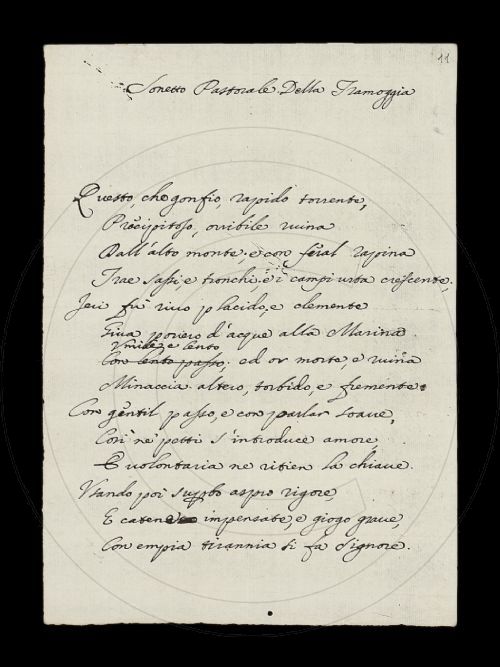 11
Sonetto Pastorale Della Tramoggia
Questo, che gonfio, rapido torrente,
Precipitoso, orribile ruina
Dall'alto monte, e con feral rapina
Trae sassi e tronchi, e i campi urta crescente,
Jeri fù rivo placido, e clemente
Giva povero d'acque alla Marina
Vmile, e lento
Con lento passo, ed or morte, e ruina
Minaccia altero, torbido, e fremente.
Con gentil passo, e con parlar soave,
Così ne' petti s'introduce amore,
E volontaria ne ritien la chiave.
Vsando poi superbo aspro rigore,
E catene impensate, e giogo grave,
Con empia tirannia si fà Signore.